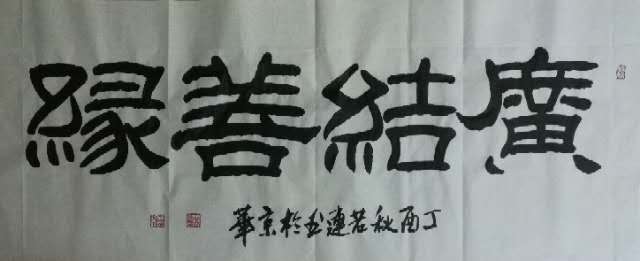 廣結善緣
丁酉秋若連書於京華